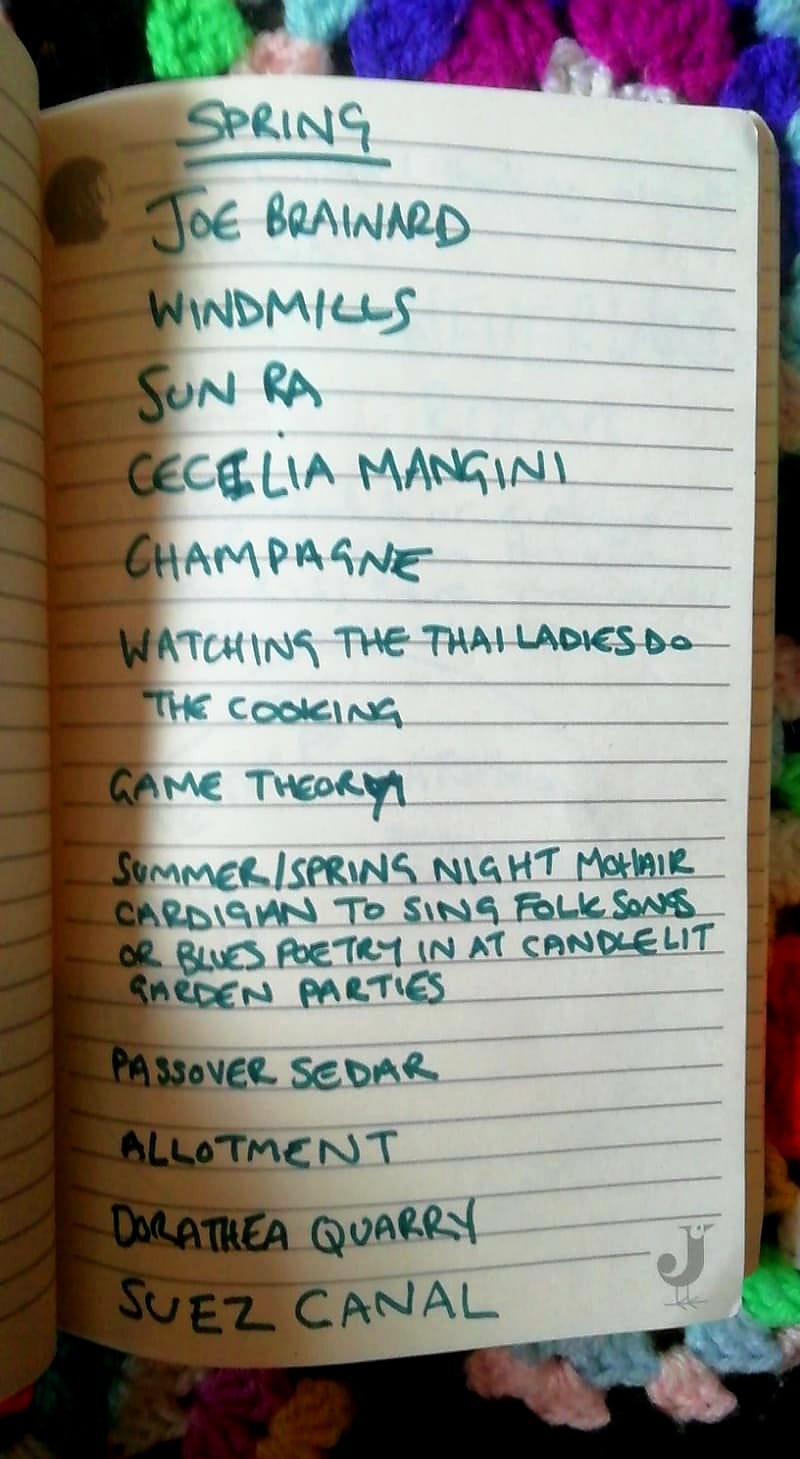 SPRING
JOE BRAINARD
WINDMILLS
SUN RA
CECILIA MANGINI
CHAMPAGNE
WATCHING THE THAI LADIES DO
THE COOKING
GAME THEORY
SUMMER/SPRING NIGHT MOHAIR
CARDIGAN TO SING FOLK SONGS
OR BLUES POETRY IN AT CANDLELIT
GARDEN PARTIES
PASSOVER SEDAR
ALLOTMENT
DORATHEA QUARRY
SUEZ CANAL